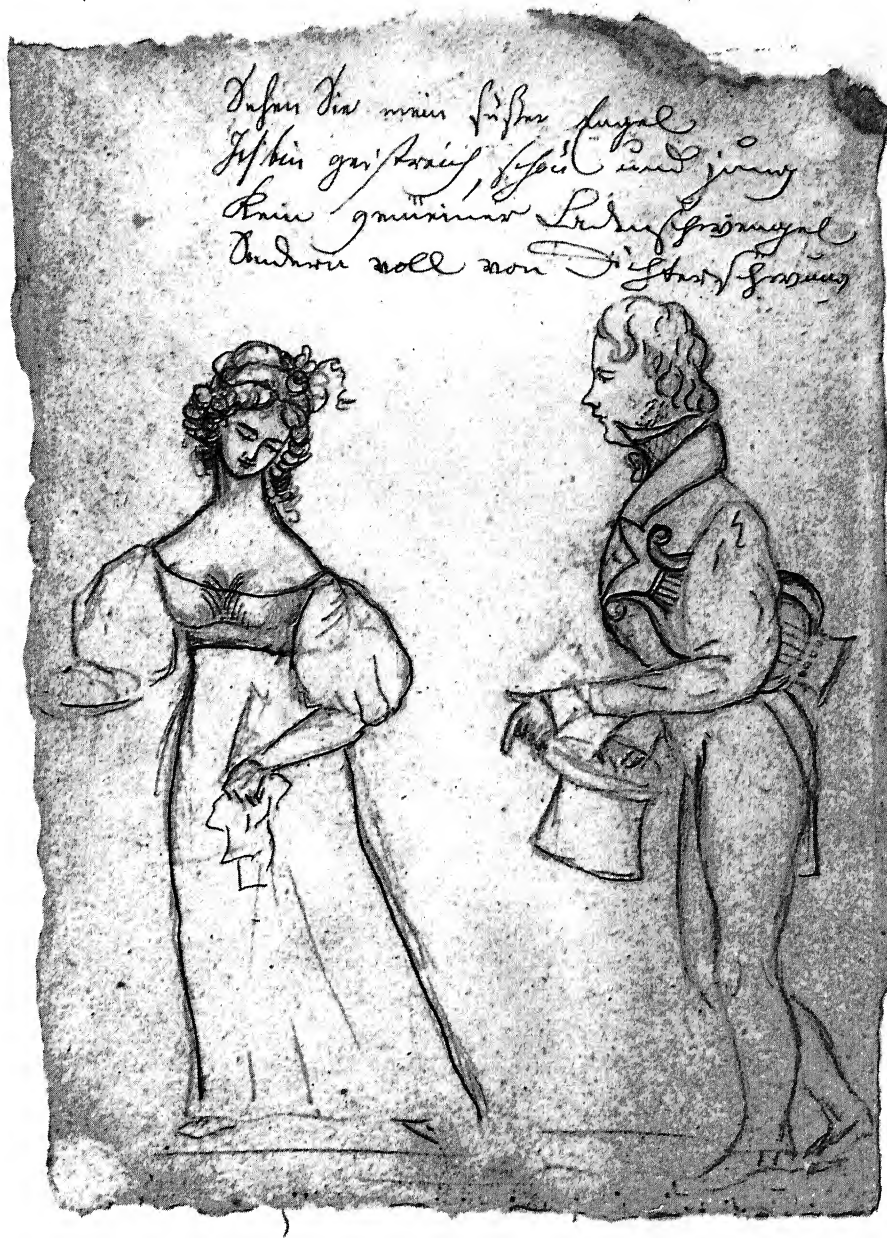 Sehen Sie mein süßer Engel
Ich bin geistreich, schön und jung
Kein gemeiner Ladenschwengel
Sondern voll von Dichterschwung